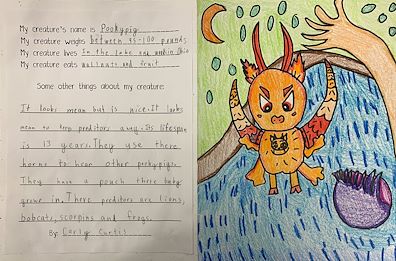 My creature's name is Pookypig
My creature weighs between 95-100 pounds
My creature lives in the lake and within Ohio
My creature eats wallnuts and fruit
Some other things about my creature:
It looks mean but is nice. It looks
mean to keep preditors away. Its lifespan
is 13 years. They use there
horns to hear other porkypigs.
They have a pouch there baby
grows in. There preditors are lions,
bobcats, scorpins and frogs.
By: Carly Curtis